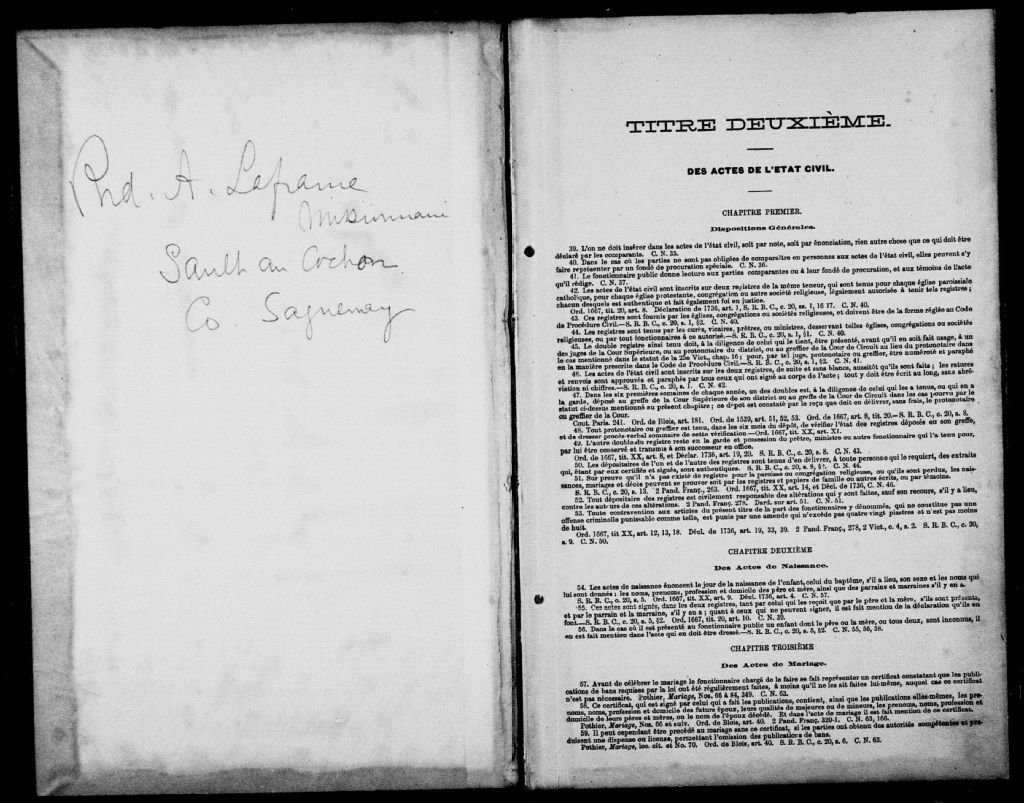 Rnd. A. Laframe
Missionnaire
Sault au Cochon
Co Saguenay
TITRE DEUXIÈME.
DES ACTES DE L'ETAT CIVIL.
CHAPITRE PREMIER.
Dispositions Générales.
39. L'on ne doit insérer dans les actes de l'état civil, soit par note, soit par énonciation, rien autre chose que ce qui doit être
déclaré par les comparants. C. N. 35.
40. Dans le cas où les parties ne sont pas obligées de comparaître en personnes aux actes de l'état civil, elles peuvent s'y
faire représenter par un fondé de procuration spéciale. C. N. 36.
41. Le fonctionnaire public donne lecture aux parties comparantes ou à leur fondé de procuration, et aux témoins de l'acte
qu'il rédige. C. N. 37.
42. Les actes de l'état civil sont inscrits sur deux registres de la même teneur, qui sont tenus pour chaque église paroissiale
catholique, pour chaque église protestante, congrégation ou autre société religieuse, légalement autorisée à tenir tels registres ;
chacun desquels est authentique et fait également foi en justice.
Ord. 1667, tit. 20, art. 8. Déclaration de 1736, art. 1, S. R. B. C., c. 20, ss. 1, 16 17. C. N. 40.
43. Ces registres sont fournis par les églises, congrégations ou sociétés religieuses, et doivent être de la forme réglée au Code
de Procédure Civil.—S. R. B. C., c. 20, s. 1, §2. C. N. 40.
44. Les registres sont tenus par les curés, vicaires, prêtres, ou ministres, desservant telles églises, congrégations ou sociétés
religieuses, ou par tout fonctionnaires à ce autorisé.—S. R. B. C., c. 20, s. 1, §1. C. N. 40.
45. Le double registre ainsi tenu doit, à la diligence de celui qui le tient, être présenté, avant qu'il en soit fait usage, à un
des juges de la Cour Supérieure, ou au protonotaire du district, ou au greffier de la Cour de Circuit au lieu du protonotaire dans
le cas mentionné dans le statut de la 25e Vict., chap. 16 ; pour, par tel juge, protonotaire ou greffier, être numéroté et paraphé
en la manière prescrite dans le Code de Procédure Civil.—S. R. B. C., c. 20, s. 1, §2. C. N. 41.
46. Les actes de l'état civil sont inscrits sur les deux registres, de suite et sans blancs, aussitôt qu'ils sont faits ; les ratures
et renvois sont approuvés et paraphés par tous ceux qui ont signé au corps de l'acte ; tout y doit être écrit au long, sans abré-
viation ni chiffres.—S. R. B. C., c. 20, s. 1. C. N. 42.
47. Dans les six premières semaines de chaque année, un des doubles est, à la diligence de celui qui les a tenus, ou qui en a
la garde, déposé au greffe de la Cour Supérieure de son district ou au greffe de la Cour de Circuit dans les cas pourvu par le
statut ci-dessus mentionné au présent chapitre ; ce dépôt est constaté par le reçu que doit en délivrer, sans frais, le protonotaire
ou greffier de la Cour.
Cout. Paris. 241. Ord. de Blois, art. 181. Ord. de 1539, art. 51, 52, 53. Ord. de 1667, art. 8, tit. 20.—S. R. B. C., c. 20, s. 8.
48. Tout protonotaire ou greffier est tenu, dans les six mois du dépôt, de vérifier l'état des registres déposés en son greffe,
et de dresser procès-verbal sommaire de cette vérification.—Ord. 1667, tit. XX, art. XI.
49. L'autre double du registre reste en la garde et possession du prêtre, ministre ou autre fonctionnaire qui l'a tenu pour,
par lui être conservé et transmis à son successeur en office.
Ord. de 1667, tit. XX, art. 8, et Déclar. 1736, art. 19, 20. S. R. B. C., c. 20, s. 8. C. N. 43.
50. Les dépositaires de l'un et de l'autre des registres sont tenus d'en délivrer, à toute personne qui le requiert, des extraits
qui, étant par eux certifiés et signés, sont authentiques. S. R. B. C., c. 20, s. 8, §2. C. N. 44.
51. Sur preuve qu'il n'a pas existé de registre pour la paroisse ou congrégation religieuse, ou qu'ils sont perdus, les nais-
sances, mariages et décès peuvent se prouver soit par les registres et papiers de famille ou autres écrits, ou par témoins.
S. R. B. C., c. 20, s. 13. 2 Pand. Franç., 263. Ord. 1667, tit. XX, art. 14, et Décl. de 1736, C. N. 46.
52. Tout dépositaire des registres est civilement responsable des altérations qui y sont faites, sauf son recours, s'il y a lieu,
contre les auteurs de ces altérations. 2 Pand. Franç. 278. Dard. sur art. 51. C. N. 51.
53. Toute contravention aux articles du présent titre de la part des fonctionnaires y dénommés, qui ne constitue pas une
offense criminelle punissable comme telle, est punie par une amende qui n'excède pas quatre vingt piastres et n'est pas moins
de huit.
Ord. 1667, tit XX, art. 12, 13, 18. Décl. de 1736, art. 19, 33, 39. 2 Pand. Franç., 278, 2 Vict., c. 4, s. 2. S. R. B. C., c. 20,
s. 9. C. N. 50.
CHAPITRE DEUXIÈME
Des Actes de Naissance.
54. Les actes de naissance énoncent le jour de la naissance de l'enfant, celui du baptême, s'il a lieu, son sexe et les noms qui
lui sont donnés ; les noms, prenoms, profession et domicile des père et mère, ainsi que des parrains et marraines s'il y en a.
S. R. B. C., c. 20, s. 5. Ord. 1667, tit. XX, art. 9. Décl. 1736, art. 4. C. N. 57.
55. Ces actes sont signés, dans les deux registres, tant par celui qui les reçoit que par le père et la mère, s'ils sont présents,
et par le parrain et la marraine, s'il y en a ; quant à ceux qui ne peuvent signer, il est fait mention de la déclaration qu'ils en
font.—S. R. B. C., c. 20, s. 5, §2. Ord. 1667, tit. 20, art. 10. C. N. 39.
56. Dans le cas où il est présenté au fonctionnaire public un enfant dont le père ou la mère, ou tous deux, sont inconnus, il
en est fait mention dans l'acte qui en doit être dressé.—S. R. B. C., c. 20, s. 5, §2. C. N. 55, 56, 58.
CHAPITRE TROISIÈME
Des Actes de Mariage.
57. Avant de célébrer le mariage le fonctionnaire chargé de le faire se fait représenter un certificat constatant que les publi-
cations de bans requises par la loi ont été régulièrement faites, à moins qu'il ne les ait faites lui-même, auquel cas ce certificat
n'est pas nécessaire. Pothier, Mariage, Nos. 66 à 84, 349. C. N. 63.
58. Ce certificat, qui est signé par celui qui a fait les publications, contient, ainsi que les publications elles-mêmes, les pre-
noms, noms, profession et domicile des futurs époux, leurs qualités de majeurs ou de mineurs, les prenoms, noms, profession et
domicile de leurs pères et mères, ou le nom de l'époux décédé. Et dans l'acte de mariage il est fait mention de ce certificat.
Pothier, Mariage, Nos. 66 et suiv. Ord. de Blois, art. 40. 2 Pand. Franç. 320-1. C. N. 63, 166.
59. Il peut cependant être procédé au mariage sans ce certificat, si les parties ont obtenu des autorités compétentes et pro-
duisent une dispense ou license, permettant l'omission des publications de bans.
Pothier, Mariage, loc. cit. et No. 70. Ord. de Blois, art. 40. S. R. B. C., c. 20, s. 6. C. N. 63.